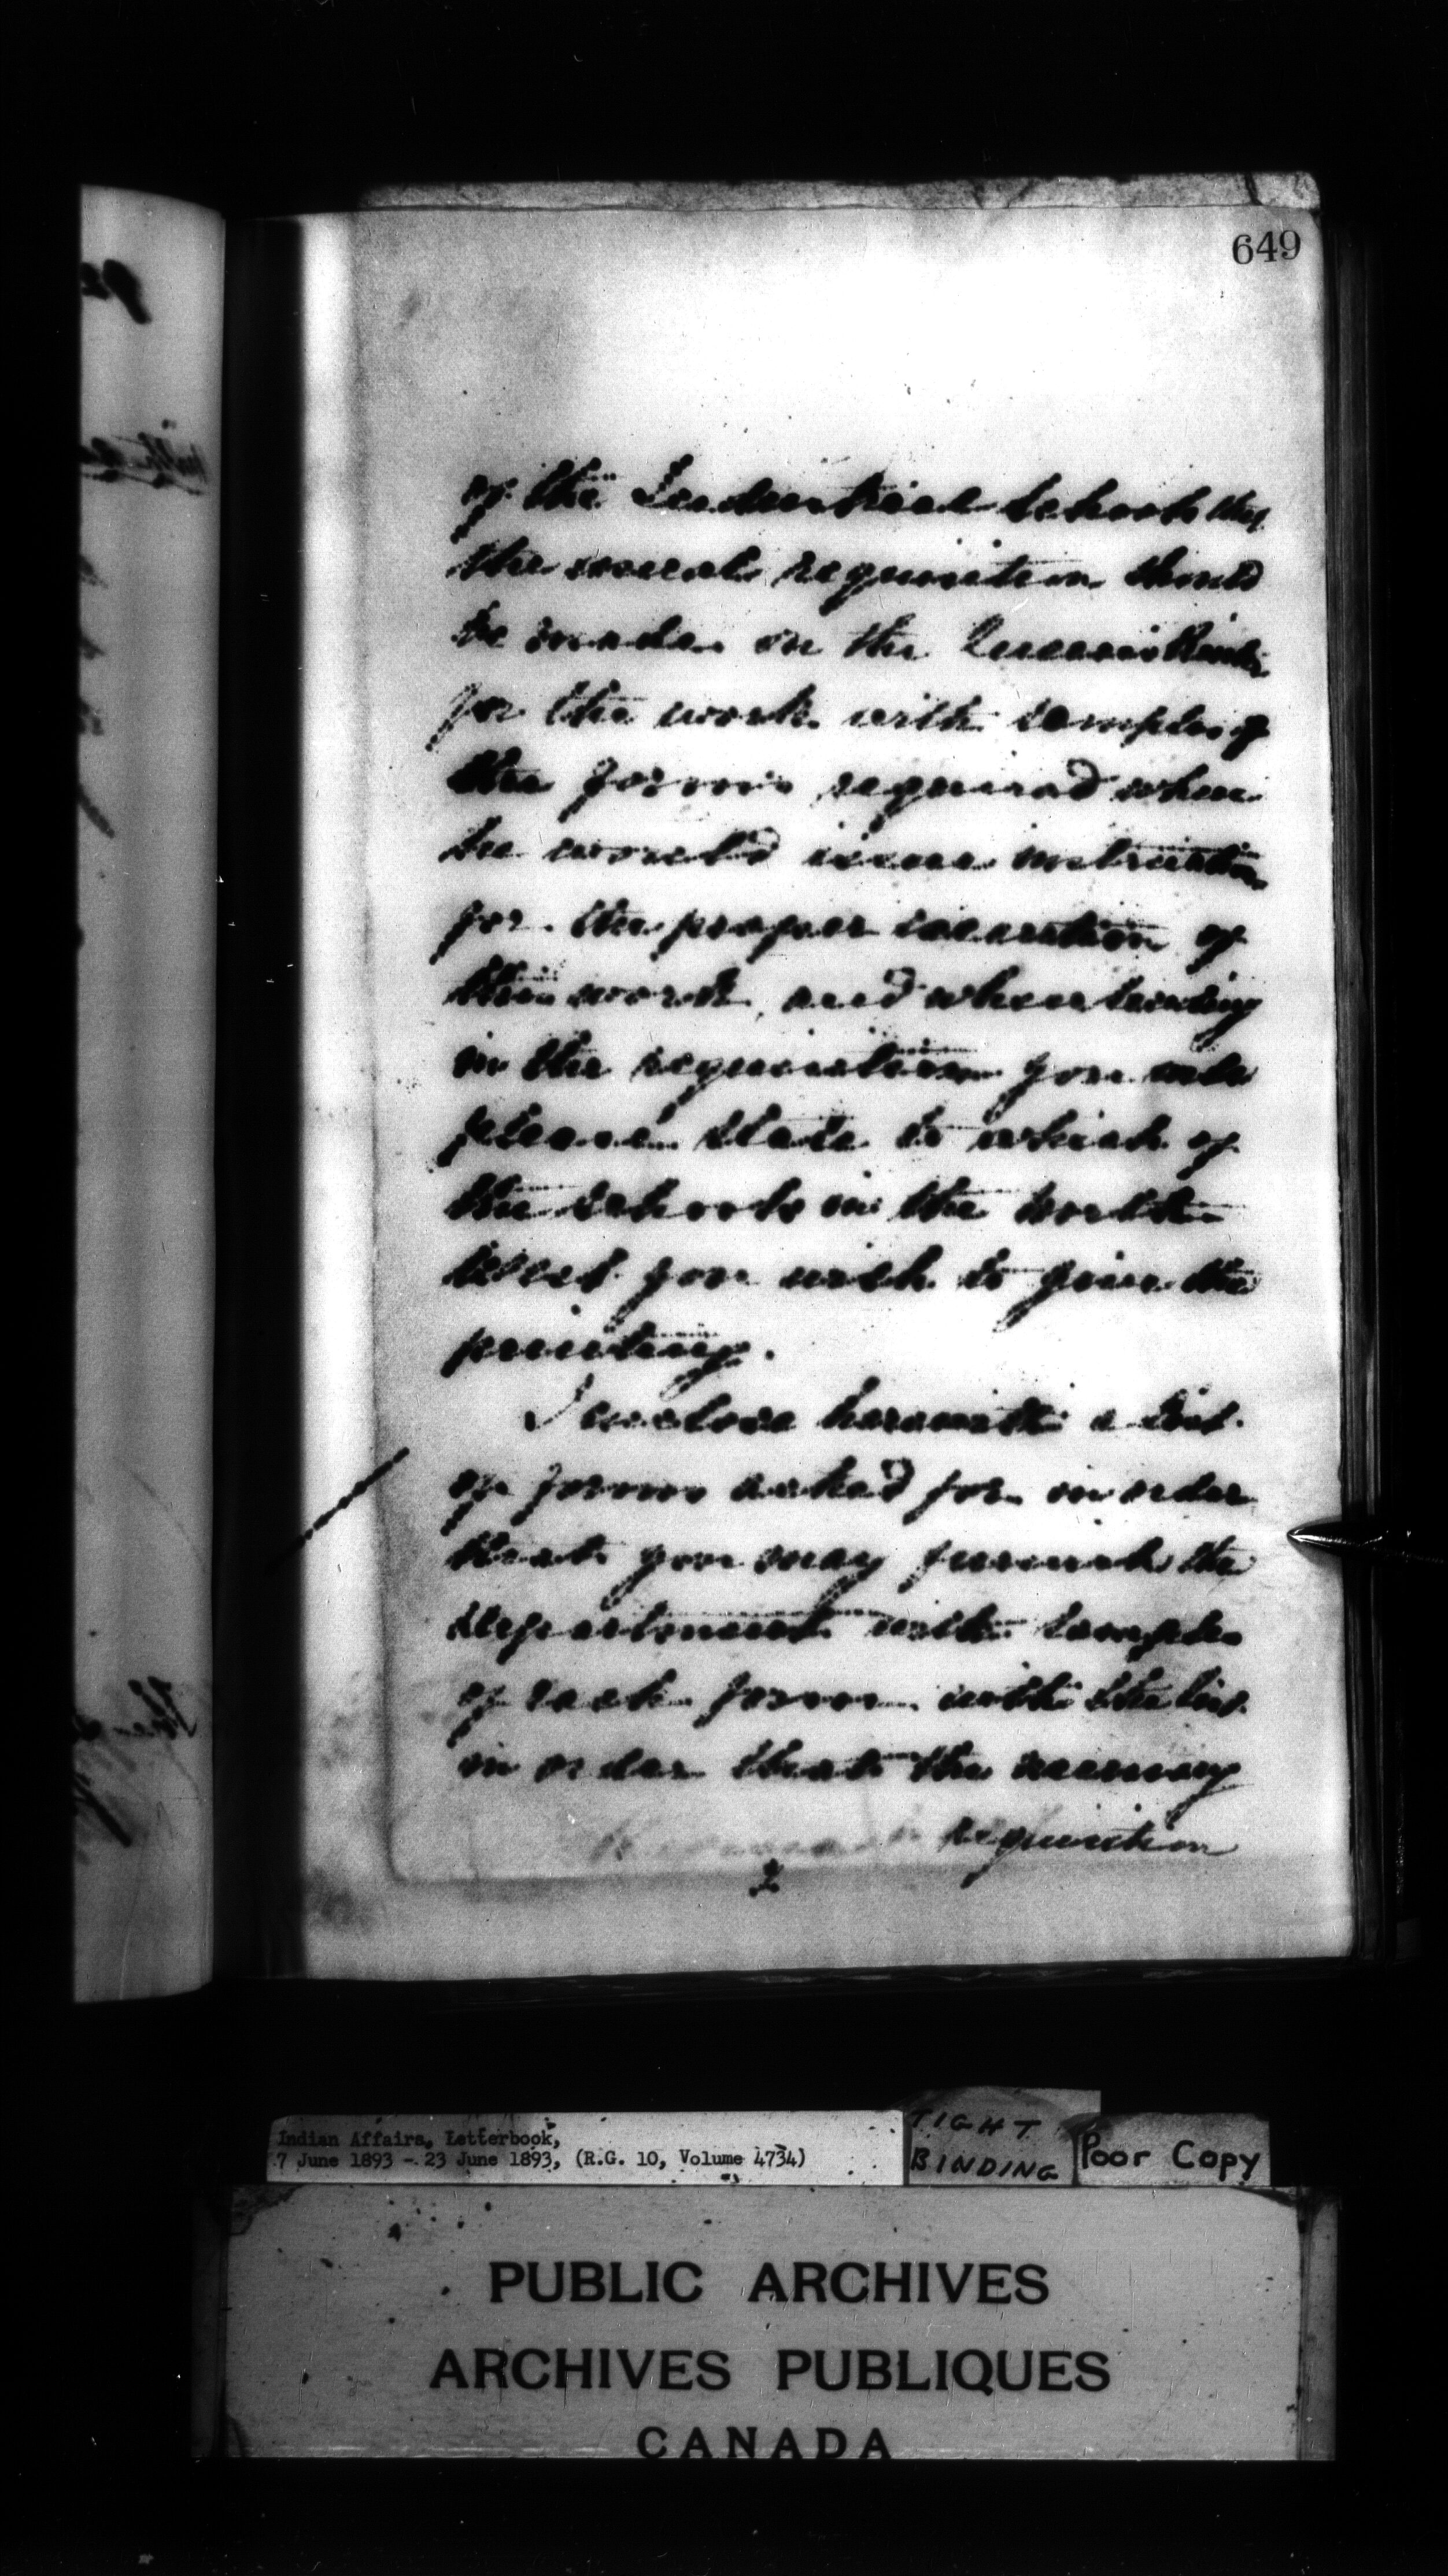 649
of the Industrial Schools that
the usual requisition should
be made on the Queen's Printer
for the work with samples of
the forms required when
he would issue instructions
for the proper execution of
the work, and when sending
in the requisition you will
please state to which of
the schools in the North
West you wish to give the
printing.
I enclose herewith a list
of forms asked for in order
that you may furnish the
Department with samples
of each form with the list
in order that the necessary
requisition
2
Indian Affairs, Letterbook,
7 June 1893 - 23 June 1893, (R.G. 10, Volume 4734)
TIGHT
BINDING
Poor Copy
PUBLIC ARCHIVES
ARCHIVES PUBLIQUES
CANADA